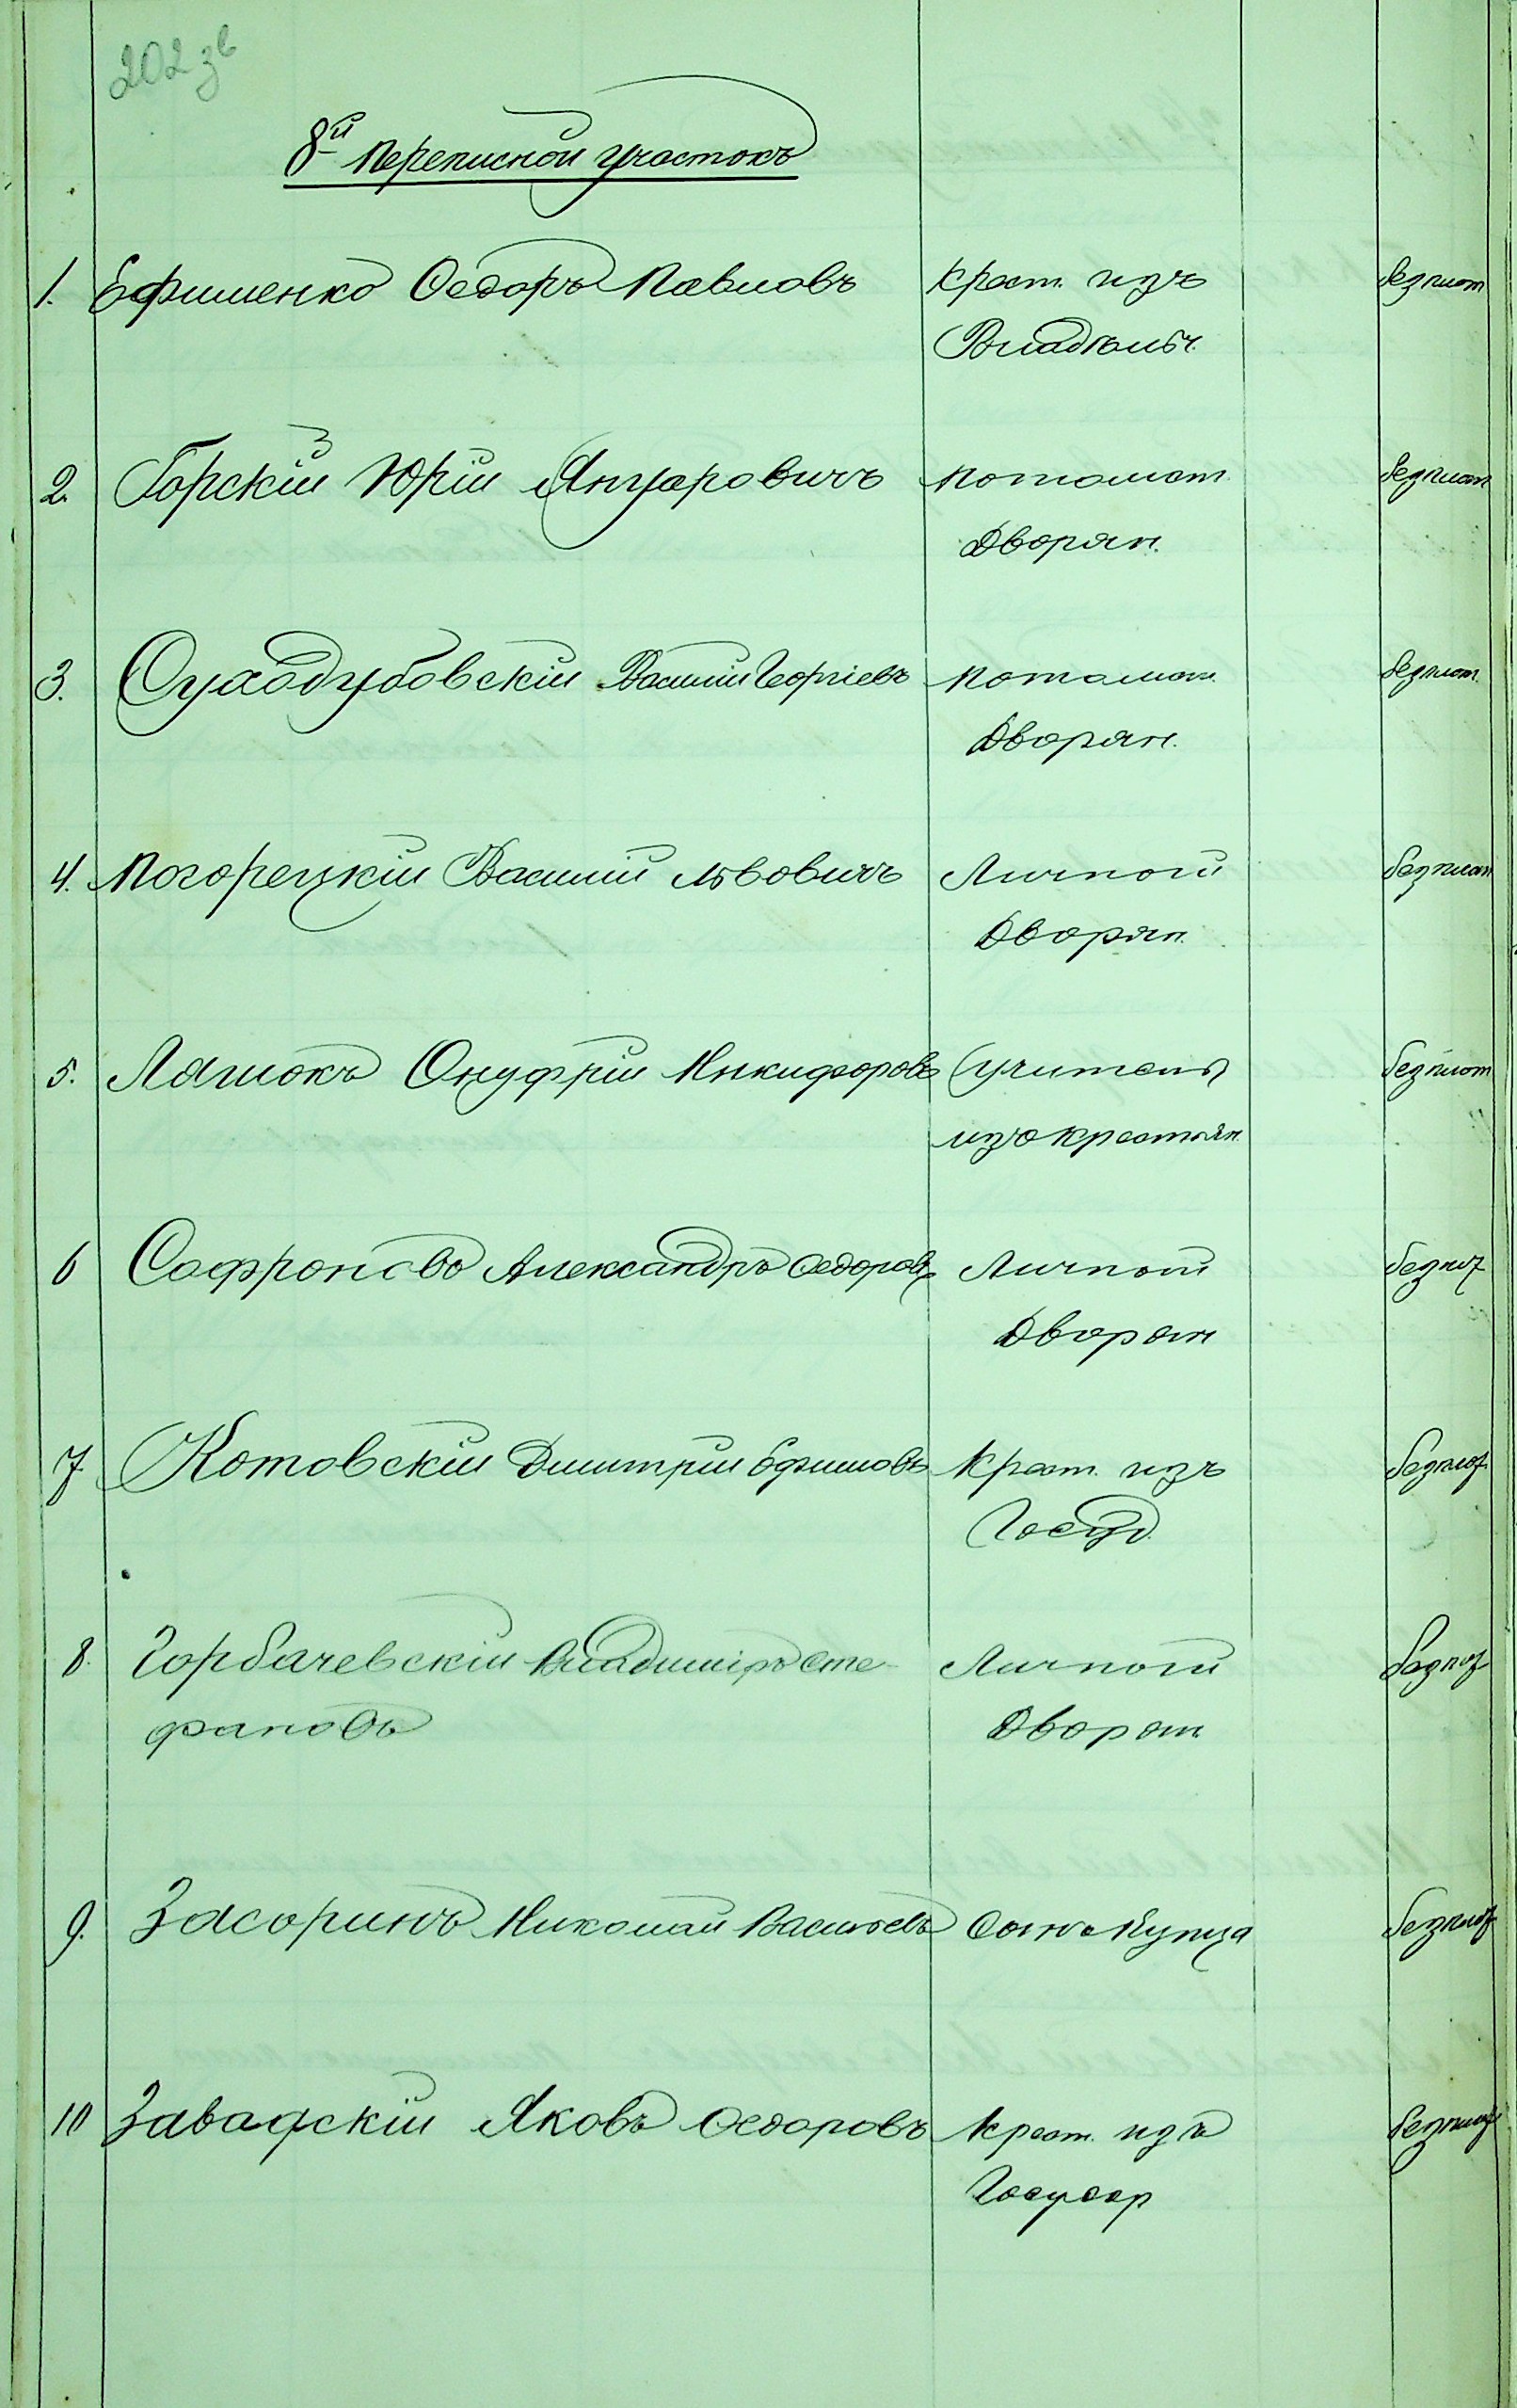 202 зв
8й переписной участокъ
1. Ефименко Ѳедоръ Павловъ крест. изъ безплат
Владѣльч.
2. Горскій Юрій Януаровичъ потомст. безплат
Дворян.
3. Суходубовскій Василій Георгіевъ потомст. безплат.
Дворян.
4. Погорецкій Василій Львовичъ Личной безплат
Дворян.
5. Ляшокъ Онуфрій Никифоровъ учитель безплат
изъ крестьян.
6 Софроновъ Александръ Ѳедоровъ Личной безпл
Дворян
7 Котовскій Дмитрій Ефимовъ Крест. изъ безплат
Госуд.
8. Горбачевскій Владиміръ Сте- Личной безпл
фановъ Дворян.
9. Засоринъ Николай Васильевъ Сынъ Купца безплат
10 Завадскій Яковъ Ѳедоровъ Крест. изъ безплат
Государ